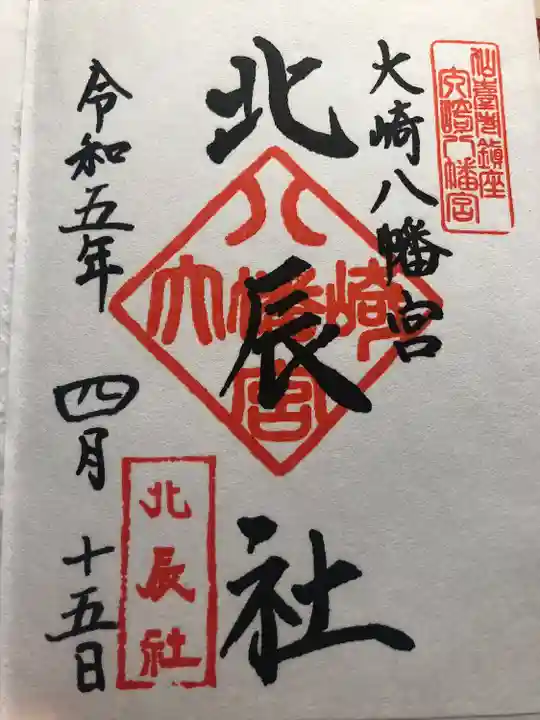 仙臺巷鎮座
大崎八幡宮
大崎八幡宮
北辰社
八
大幡崎
宮
北辰社
令和五年 四月 十五日